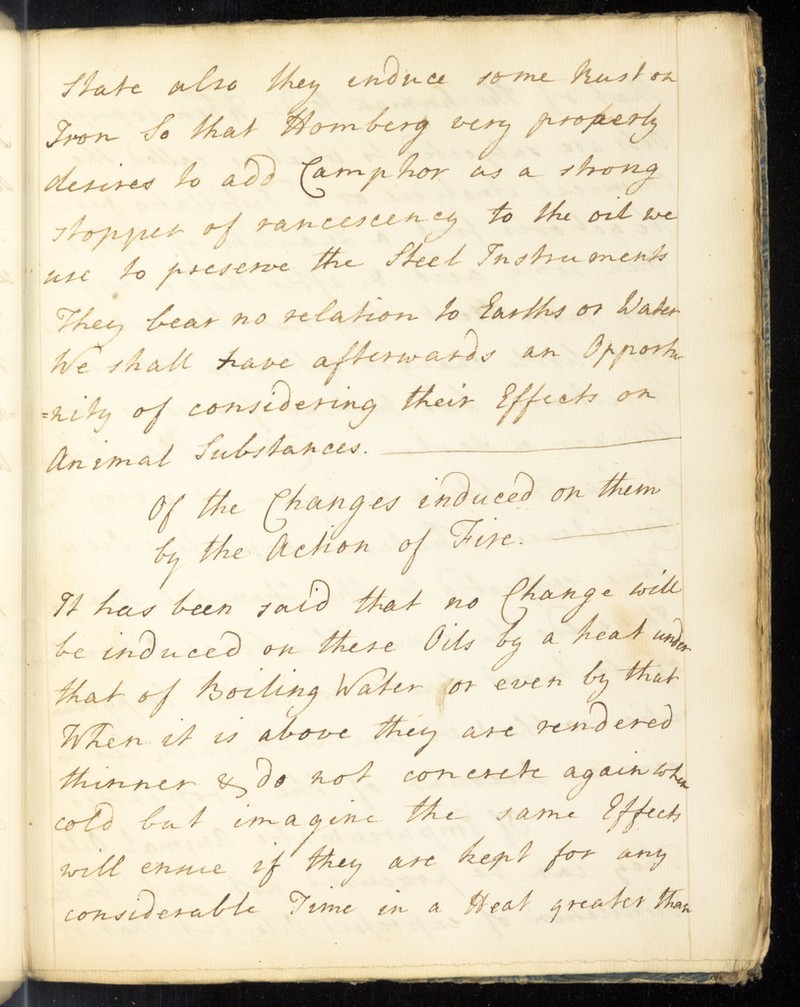 State also they induce some Rust on
Iron So that Homberg very properly
desires to add Camphor as a strong
stopper of rancescency to the oil we
use to preserve the Steel Instruments
They bear no relation to Earths or Water
We shall have afterwards an Opportu
=nity of considering their Effects on
Animal Substances.
Of the Changes induced on them
by the Action of Fire.
It has been said that no Change will
be induced on these Oils by a heat under
that of Boiling Water or even by that
When it is above they are rendered
thinner & do not concrete again when
cold but imagine the same Effects
will ensue if they are kept for any
considerable Time in a Heat greater than